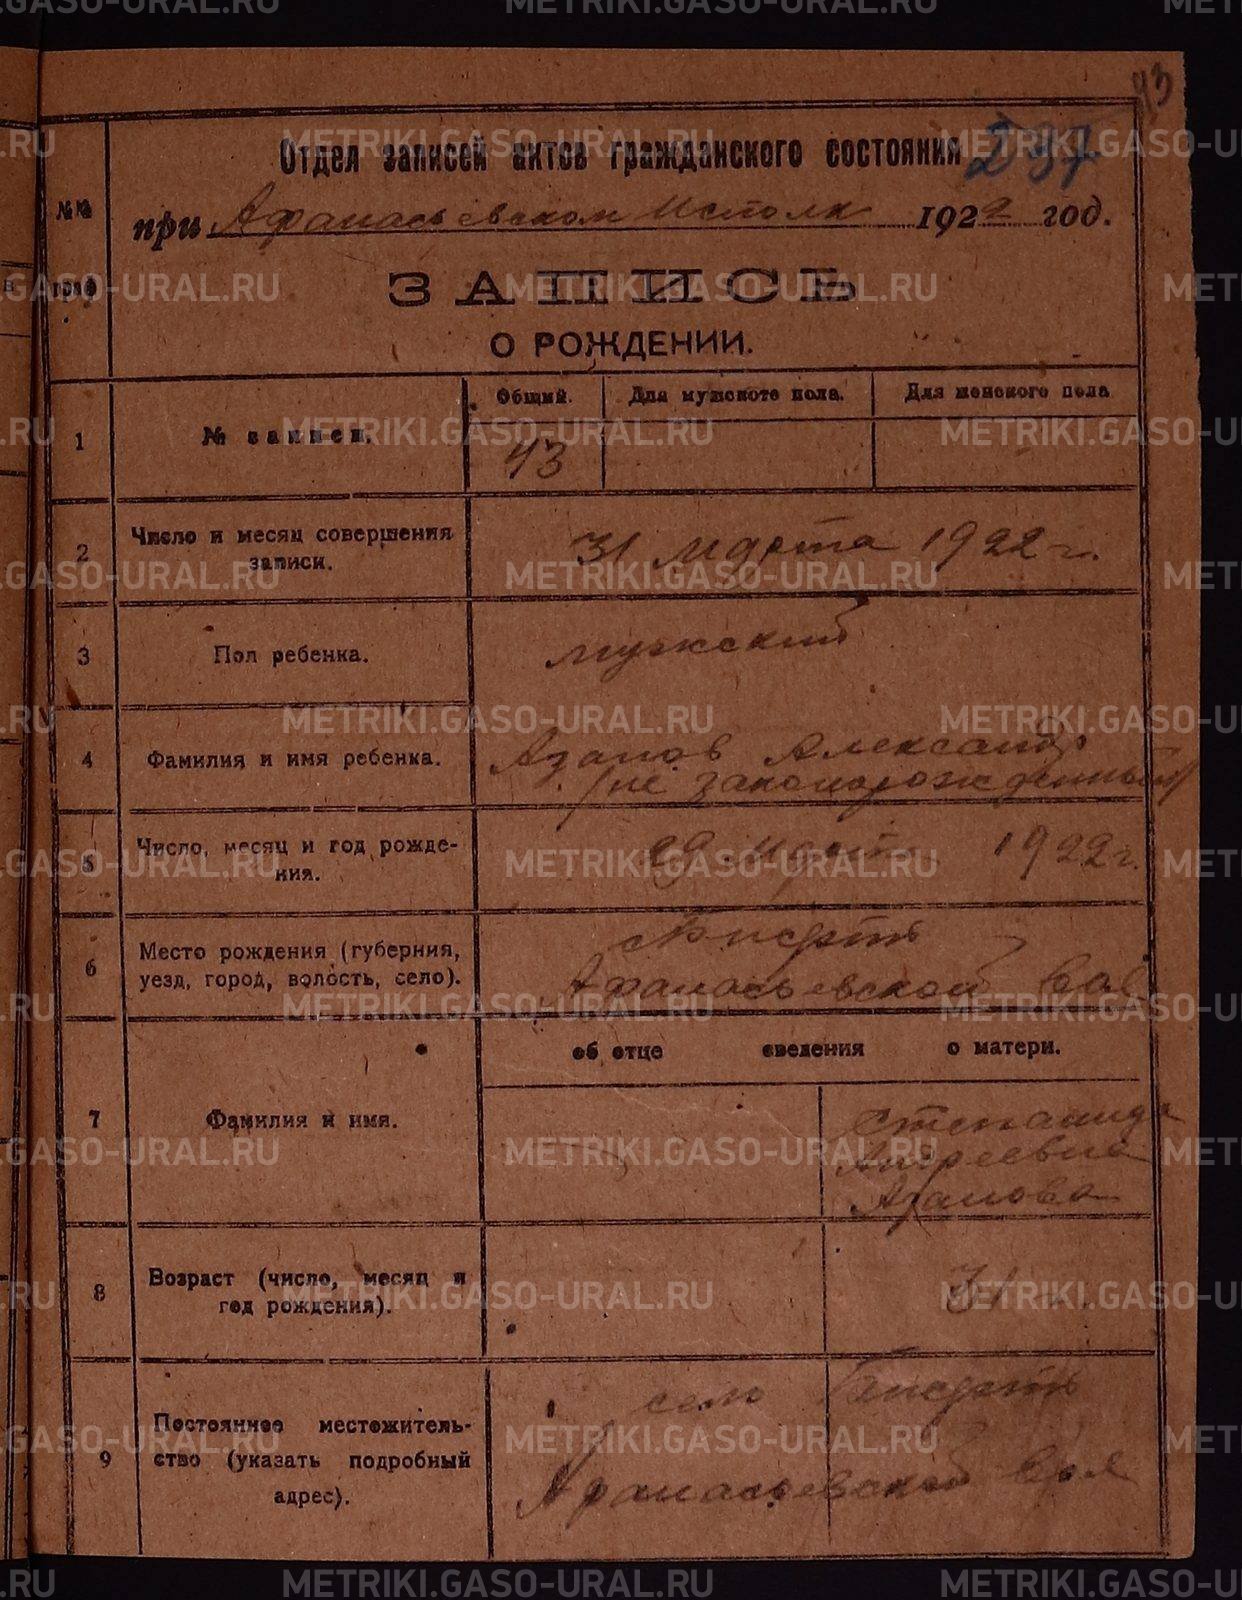 METRIKI.GASO-URAL.RU
43
Отдел записей актов гражданского состояния
237
при Афанасьевском исполк 1922 год.
№№ граф
ЗАПИСЬ
О РОЖДЕНИИ.
Общий. Для мужского пола. Для женского пола
1 № записи. 43
2 Число и месяц совершения записи. 31 марта 1922 г.
3 Пол ребенка. мужский
4 Фамилия и имя ребенка. Азанов Александр
(не законорожденный)
5 Число, месяц и год рожде-
ния. 29 марта 1922 г.
6 Место рождения (губерния,
уезд, город, волость, село).
Афанасьевской вол
об отце сведения о матери.
7 Фамилия и имя. Степанида
Андреевна
Азанова
8 Возраст (число, месяц и
год рождения). 31
9 Постоянное местожитель-
ство (указать подробный
адрес).
село
Афанасьевской вол